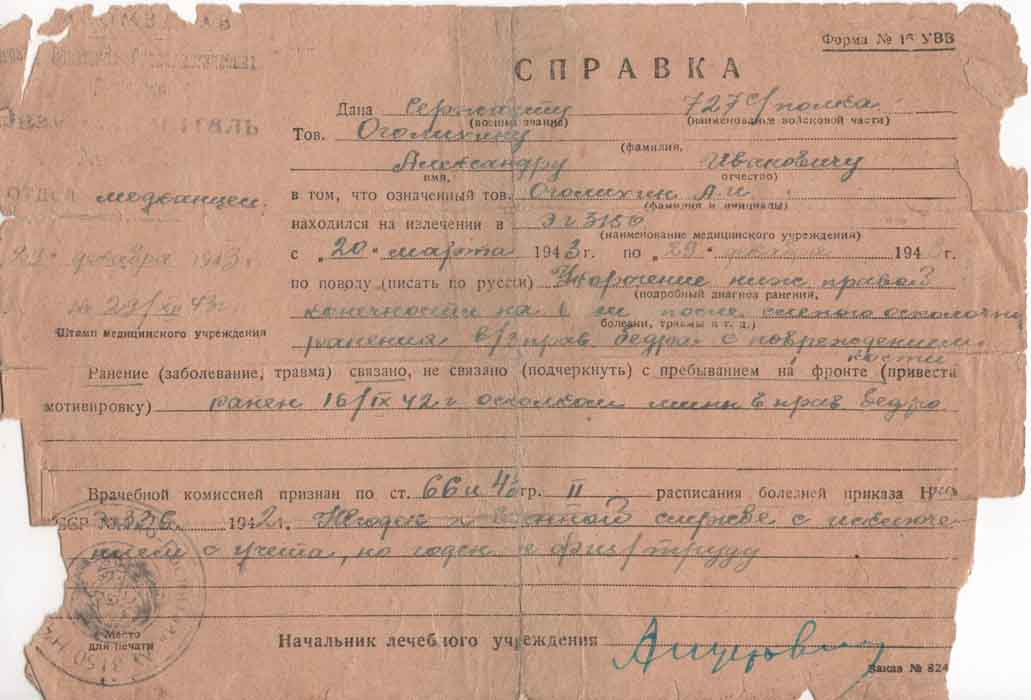 Форма № 16 УВВ
СПРАВКА
Дана Сержанту 727 с/полка
(воинское звание) (наименование войсковой части)
Тов.
(фамилия,
Александру Ивановичу
имя, отчество)
в том, что означенный тов.
(фамилия и инициалы)
находился на излечении в эг 3150
(наименование медицинского учреждения)
с „20“ марта 1943г. по „29“ декабря 1943г.
по поводу (писать по русски) Укорочение ниж правой
(подробный диагноз ранения,
конечности на см после слепого осколочн
болезни, травмы и т. д.)
ранения в/3 прав. бедра с повреждением
кости
Ранение (заболевание, травма) связано, не связано (подчеркнуть) с пребыванием на фронте (привести
мотивировку) ранен 16/IX 42 г осколком мины в прав бедро
Врачебной комиссией признан по ст. гр. II расписания болезней приказа
ССР № 336 1942г. Негоден к военной службе с исключе
нием с учета, но годен к физ/труду
Начальник лечебного учреждения
Заказ № 824
ОТДЕЛ медканцел.
29 декабря 1943 г.
№ 29/XII 43г
Штамп медицинского учреждения
Место
для печати